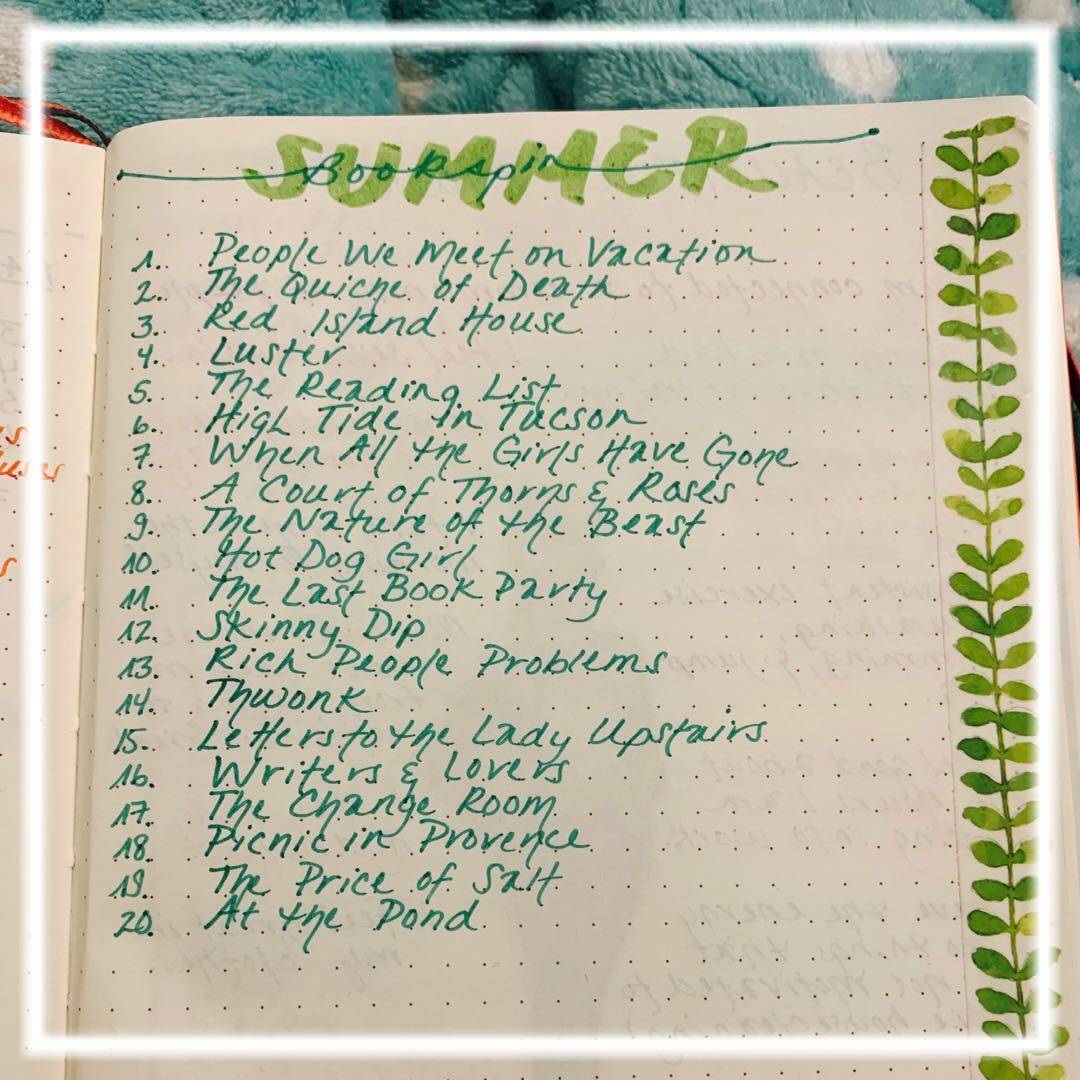 SUMMER
Bookspin
1. People We Meet on Vacation
2. The Quiche of Death
3. Red Island House
4. Luster
5. The Reading List
6. High Tide in Tucson
7. When All the Girls Have Gone
8. A Court of Thorns & Roses
9. The Nature of the Beast
10. Hot Dog Girl
11. The Last Book Party
12. Skinny Dip
13. Rich People Problems
14. Thwonk
15. Letters to the Lady Upstairs
16. Writers & Lovers
17. The Change Room
18. Picnic in Provence
19. The Price of Salt
20. At the Pond